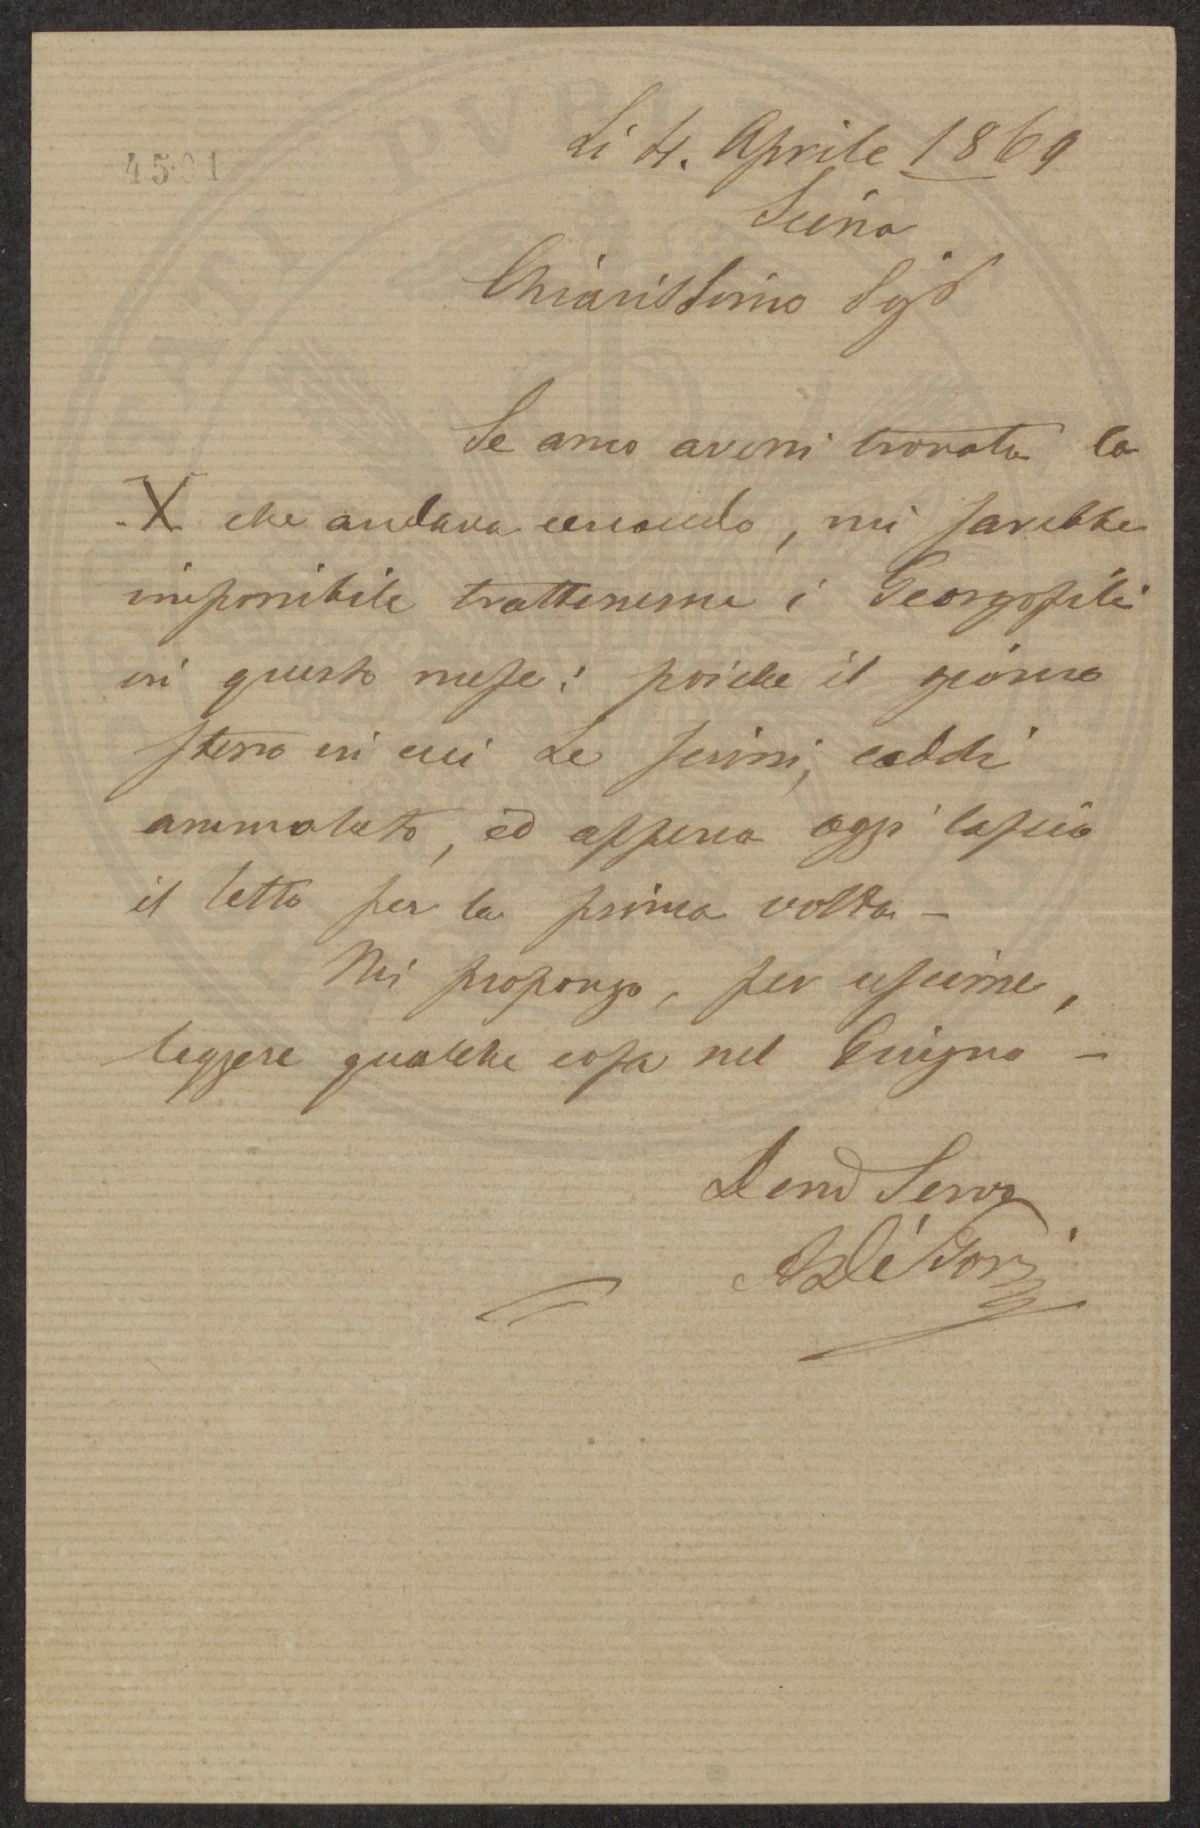 4501
Li 4. Aprile 1869
Siena
Chiarissimo Sigr
Se anco avessi trovata la
X che andava cercando, mi sarebbe
impossibile trattenerne i Georgofili
in questo mese: poiche il giorno
stesso in cui Le scrissi, caddi
ammalato, ed appena oggi lascio
il letto per la prima volta –
Mi propongo, per uscirne,
leggere qualche cosa nel Giugno –
Servo